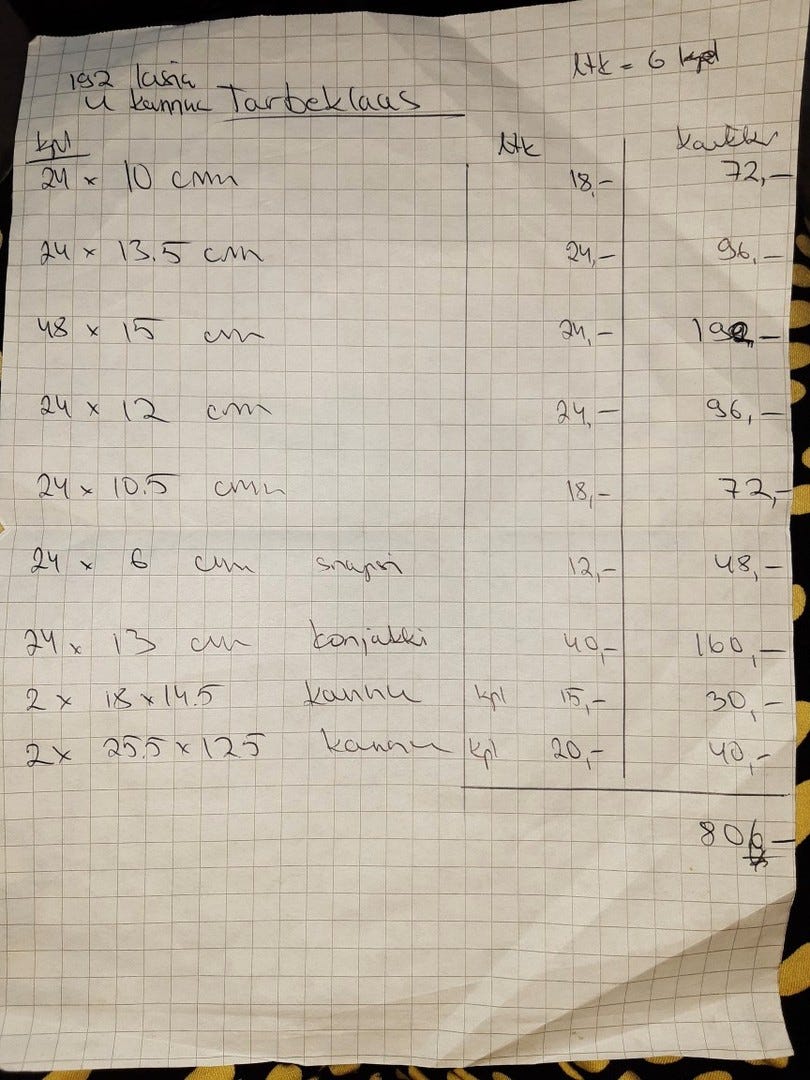 192 lasia
ltk = 6 kpl
4 kannua Tarbeklaas
kpl ltk kaikki
24 x 10 cm 18,- 72,-
24 x 13.5 cm 24,- 96,-
48 x 15 cm 24,- 192,-
24 x 12 cm 24,- 96,-
24 x 10.5 cm 18,- 72,-
24 x 6 cm snapsi 12,- 48,-
24 x 13 cm konjakki 40,- 160,-
2 x 18 x 14.5 kannu kpl 15,- 30,-
2 x 25.5 x 12.5 kannu kpl 20,- 40,-
806,-